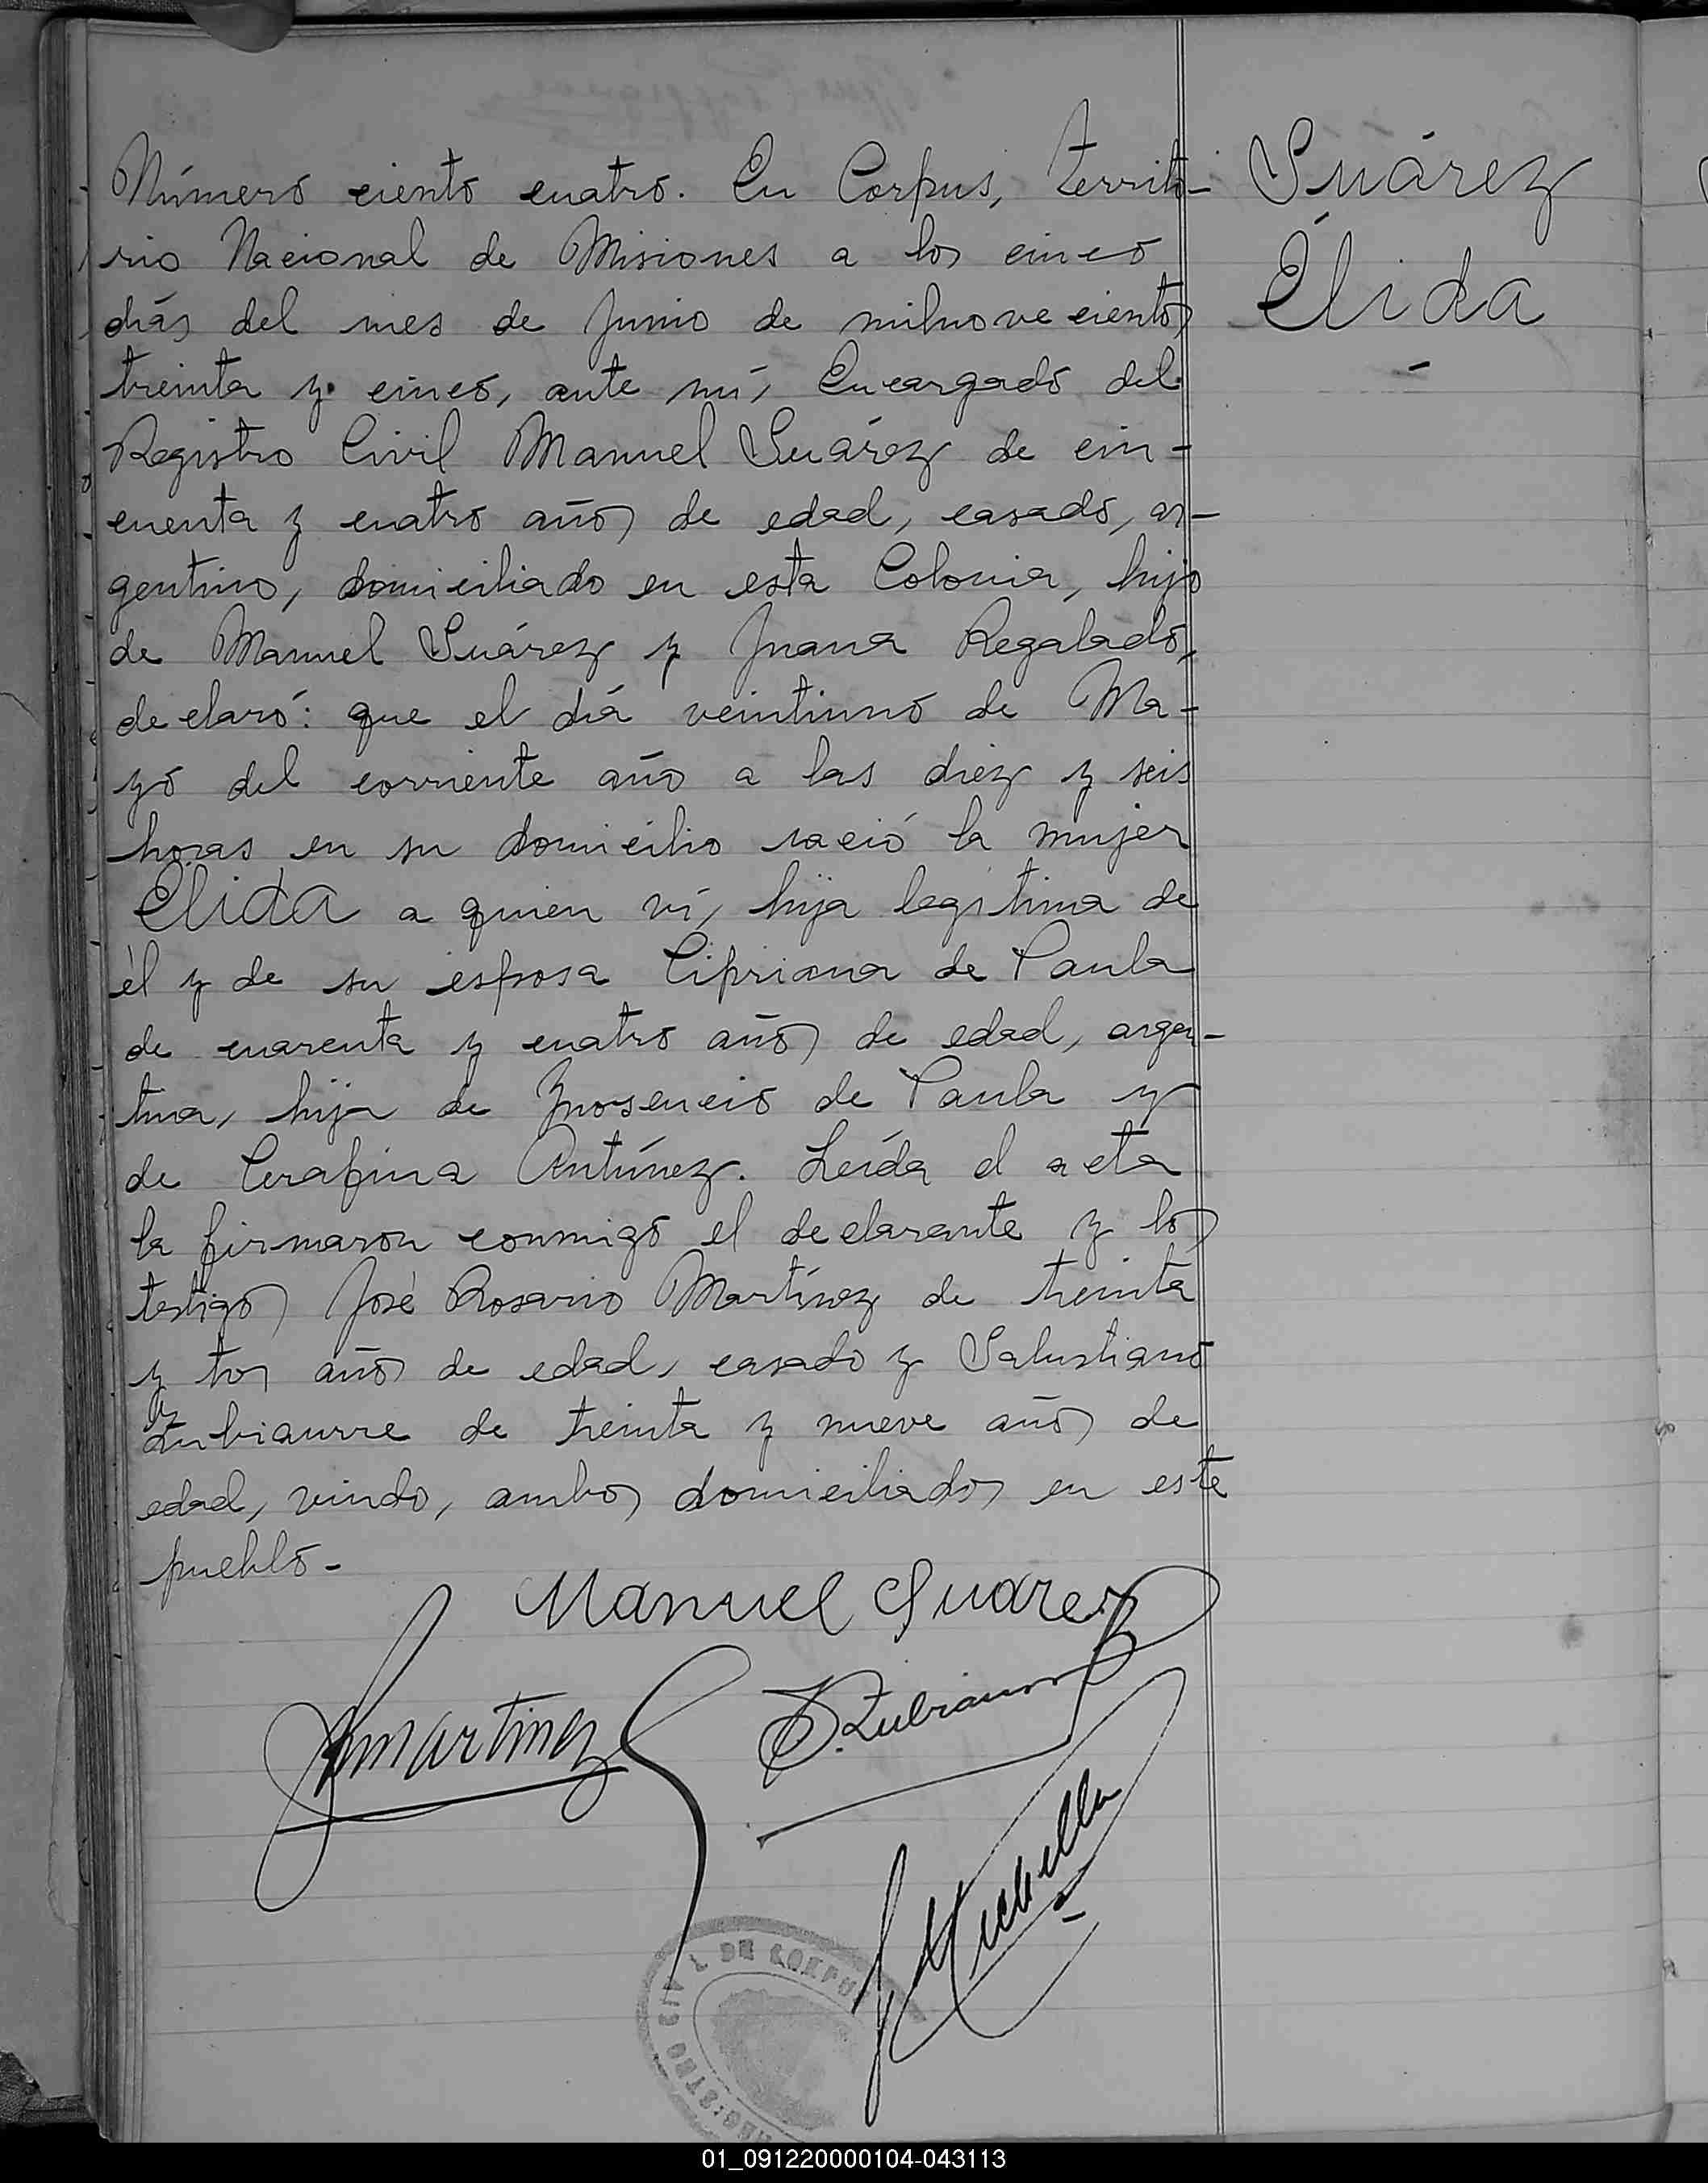 Número ciento cuatro. En Corpus, Territo-
rio Nacional de Misiones a los cinco
días del mes de Junio de milnovecientos
treinta y cinco, ante mí, Encargado del
Registro Civil Manuel Suárez de cin-
cuenta y cuatro años de edad, casado, ar-
gentino, domiciliado en esta Colonia, hijo
de Manuel Suárez y Juana Regalado,
declaró: que el día veintiuno de Ma-
yo del corriente año a las diez y seis
horas en su domicilio nació la mujer
Élida a quien ví, hija legítima de
él y de su esposa Cipriana de Paula
de cuarenta y cuatro años de edad, argen-
tina, hija de Inosencio de Paula y
de Cerafina Antúnez. Leída el acta
la firmaron conmigo el declarante y los
testigos José Rosario Martínez de treinta
y años de edad, casado y Salustiano
Zubiaurre de treinta y nueve años de
edad, viudo, ambos domiciliados en este
pueblo-
Suárez
Élida
-
Manuel Suarez
Martinez
S. Zubiaurre
REGISTRO CIVIL DE CORPUS
01_091220000104-043113